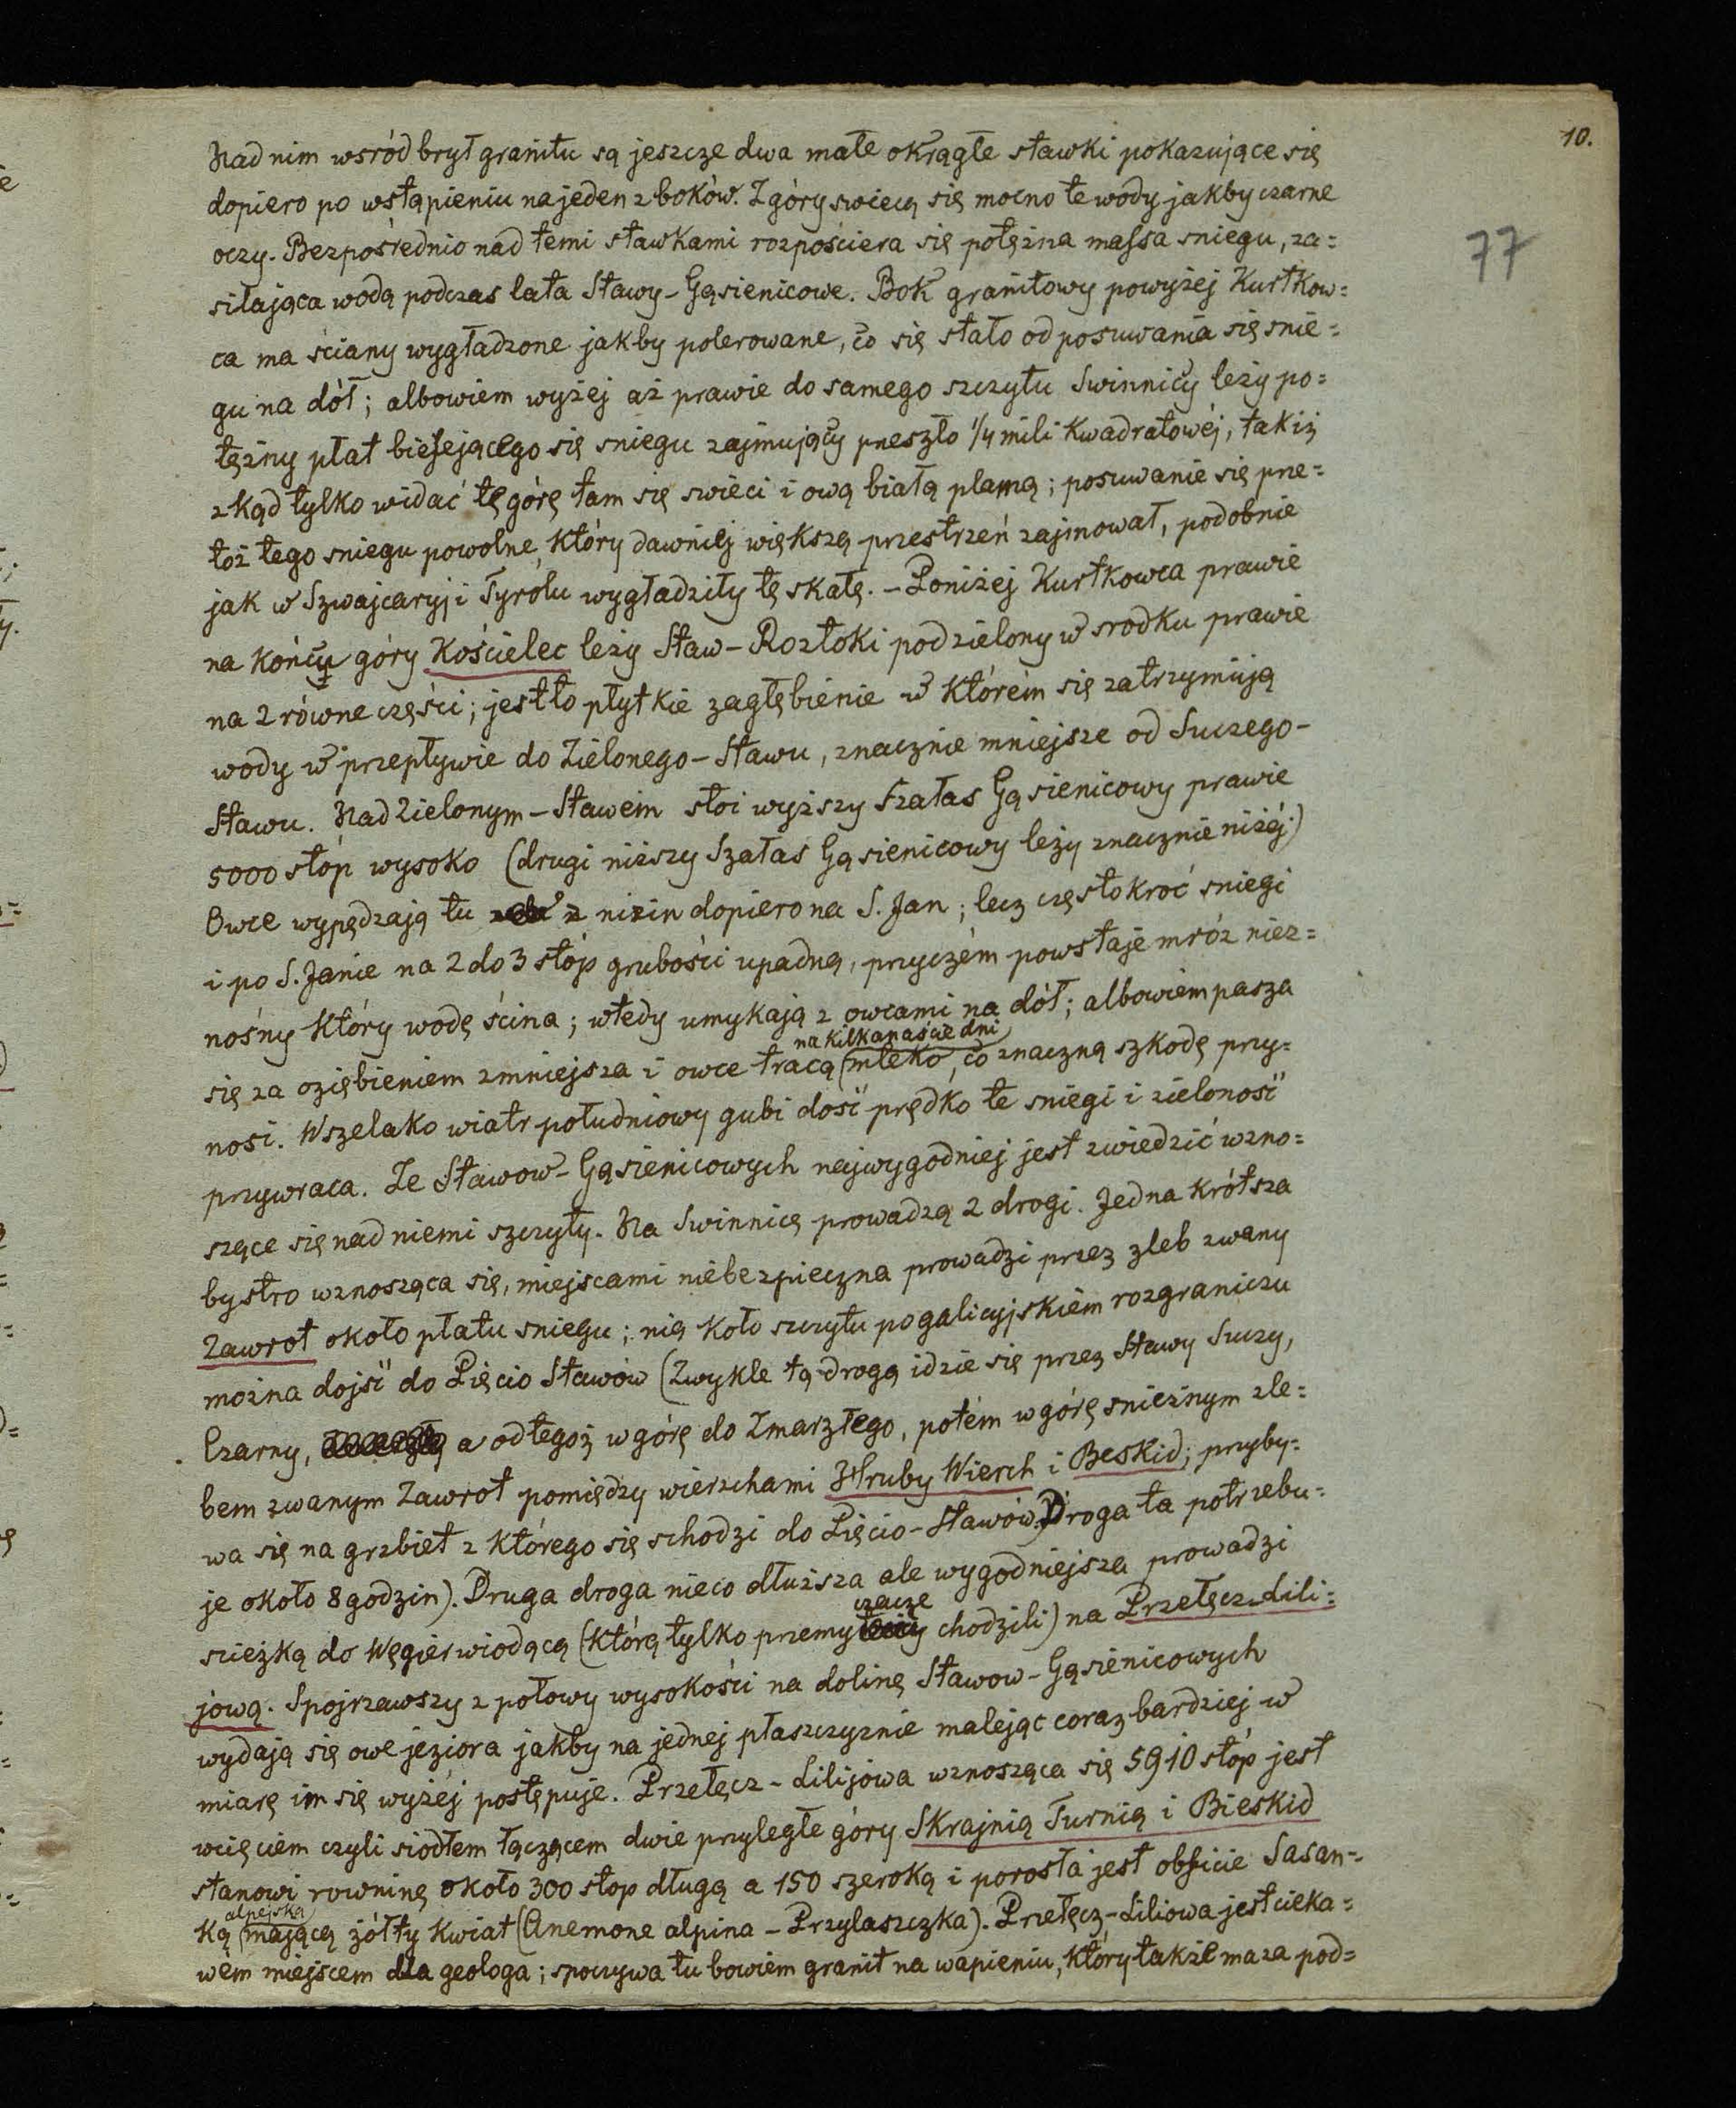 10.
77
Nad nim wsród brył granitu są jeszcze dwa małe okrągłe stawki pokazujące się
dopiero po wstąpieniu na jeden z boków. Z góry swiecą się mocno te wody jakby czarne
oczy. Bezpośrednio nad temi stawkami rozpościera się potężna massa sniegu, za=
silająca wodą podczas lata Stawy-Gąsienicowe. Bok granitowy powyżej Kurtkow=
ca ma ściany wygładzone jakby polerowane, co się stało od posuwania się snie=
gu na dół; albowiem wyżej aż prawie do samego szczytu Swinnicy leży po=
tężny płat bielejącego się sniegu zajmujący przeszło 1/4 mili kwadratowéj, tak iż
zkąd tylko widać tę górę tam się swieci i ową białą plamą; posuwanie się prze=
toż tego sniegu powolne, który dawniej większą przestrzeń zajmował, podobnie
jak w Szwajcaryj i Tyrolu wygładziły tę skałę. – Poniżej Kurtkowca prawie
na końcu góry Kościelec leży Staw-Roztoki podzielony w srodku prawie
na 2 równe części; jest to płytkie zagłębienie w którém się zatrzymują
wody w przepływie do Zielonego-Stawu, znacznie mniejsze od Suczego-
Stawu. Nad Zielonym-Stawem stoi wyższy Szałas Gąsienicowy prawie
5000 stóp wysoko (drugi niższy Szałas Gąsienicowy leży znacznie niżéj)
Owce wypędzają tu z nizin dopiero na S. Jan; lecz częstokroć sniegi
i po S. Janie na 2 do 3 stóp grubości upadną, przyczém powstaje mróz niez=
nośny który wodę ścina; wtedy umykają z owcami na dół; albowiem pasza
na kilkanaście dni
się za oziębieniem zmniejsza i owce tracą mleko, co znaczną szkodę przy=
nosi. Wszelako wiatr południowy gubi dość prędko te sniegi i zieloność
przywraca. Ze Stawow-Gąsienicowych najwygodniej jest zwiedzić wzno=
szące się nad niemi szczyty. Na Swinnicę prowadzą 2 drogi. Jedna krótsza
bystro wznosząca się, miejscami niebezpieczna prowadzi przez zleb zwany
Zawrot około płatu sniegu; nią koło szczytu po galicyjskiém rozgraniczu
można dojść do Pięcio Stawów (Zwykle tą drogą idzie się przez Stawy Suczy,
Czarny, a od tegoż w górę do Zmarzłego, potém w górę snieżnym zle=
bem zwanym Zawrot pomiędzy wierzchami Hruby Wierch i Beskid; przyby=
wa się na grzbiet z którego się schodzi do Pięcio-Stawów. Droga ta potrzebu=
je około 8 godzin). Druga droga nieco dłuższa ale wygodniejsza prowadzi
czacze
scieżką do Węgier wiodącą (którą tylko przemy chodzili) na Przełęcz-Lili=
jową. Spojrzawszy z połowy wysokości na dolinę Stawow-Gąsienicowych
wydają się owe jeziora jakby na jednej płaszczyznie malejąc coraz bardziej w
miarę im się wyżéj postępuje. Przełęcz-Lilijowa wznosząca się 5910 stóp jest
wcięciem czyli siodłem łączącem dwie przyległe góry Skrajnią Turnią i Bieskid
stanowi rowninę około 300 stop długą a 150 szeroką i porosła jest obficie Sasan=
alpejską
ką mającą żółty kwiat (Anemone alpina – Przylaszczka). Przełęcz-Liliowa jest cieka=
wém miejscem dla geologa; spoczywa tu bowiem granit na wapieniu, który także ma za pod=